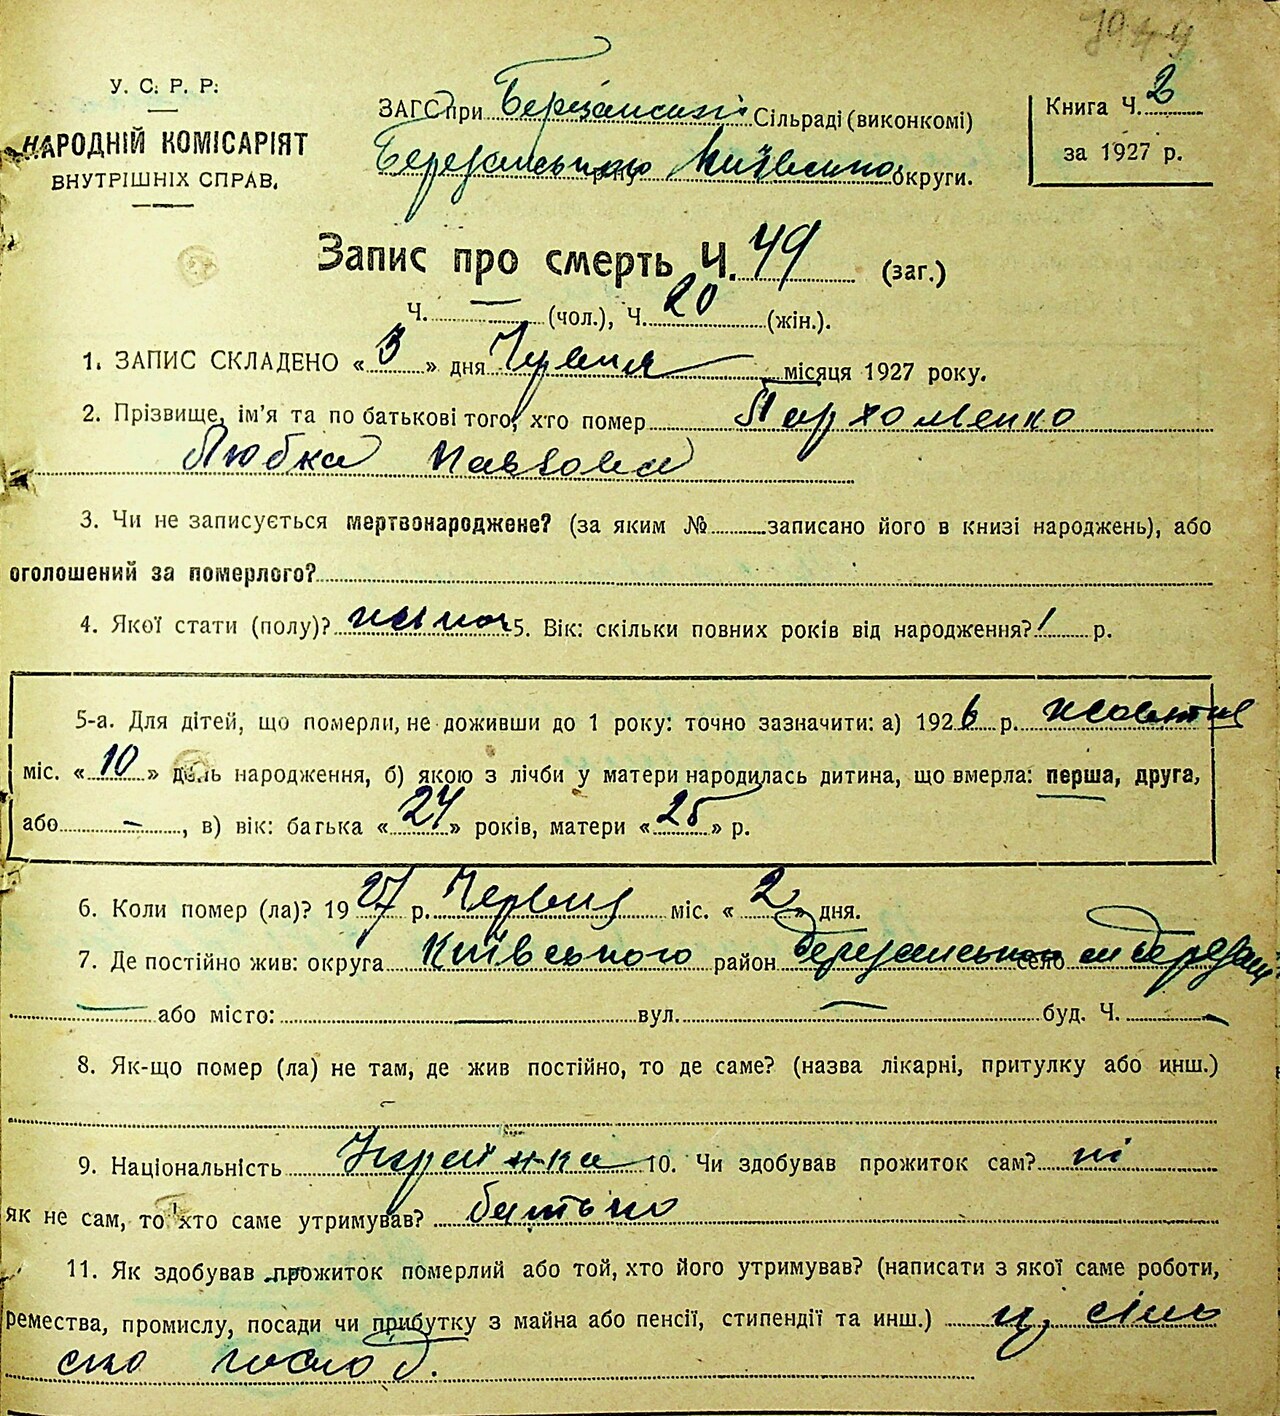 1944
У. С. Р. Р.
НАРОДНІЙ КОМІСАРІЯТ
ВНУТРІШНІХ СПРАВ.
ЗАГС при Березанській Сільраді (виконкомі)
Березанського р-ну Київської округи.
Книга Ч. 2
за 1927 р.
Запис про смерть Ч. 49 (заг.)
Ч. — (чол.), Ч. 20 (жін.).
1. ЗАПИС СКЛАДЕНО « 3 » дня Червня місяця 1927 року.
2. Прізвище, ім'я та по батькові того, хто помер Пархоменко
Любка Павловна
3. Чи не записується мертвонароджене? (за яким № записано його в книзі народжень), або
оголошений за померлого?
4. Якої стати (полу)? жіноч 5. Вік: скільки повних років від народження? / р.
5-а. Для дітей, що померли, не доживши до 1 року: точно зазначити: а) 1926 р. жовтня
міс. « 10 » день народження, б) якою з лічби у матери народилась дитина, що вмерла: перша, друга,
або —, в) вік: батька « 24 » років, матери « 25 » р.
6. Коли помер (ла)? 1927 р. Червня міс. « 2 » дня.
7. Де постійно жив: округа Київського район Березанського село м Березань
— або місто: — вул. — буд. Ч. —
8. Як-що помер (ла) не там, де жив постійно, то де саме? (назва лікарні, притулку або инш.)
—
9. Національність Україн-ка 10. Чи здобував прожиток сам? ні
як не сам, то хто саме утримував? батько
11. Як здобував прожиток померлий або той, хто його утримував? (написати з якої саме роботи,
ремества, промислу, посади чи прибутку з майна або пенсії, стипендії та инш.) із сіль
ско госпо д.